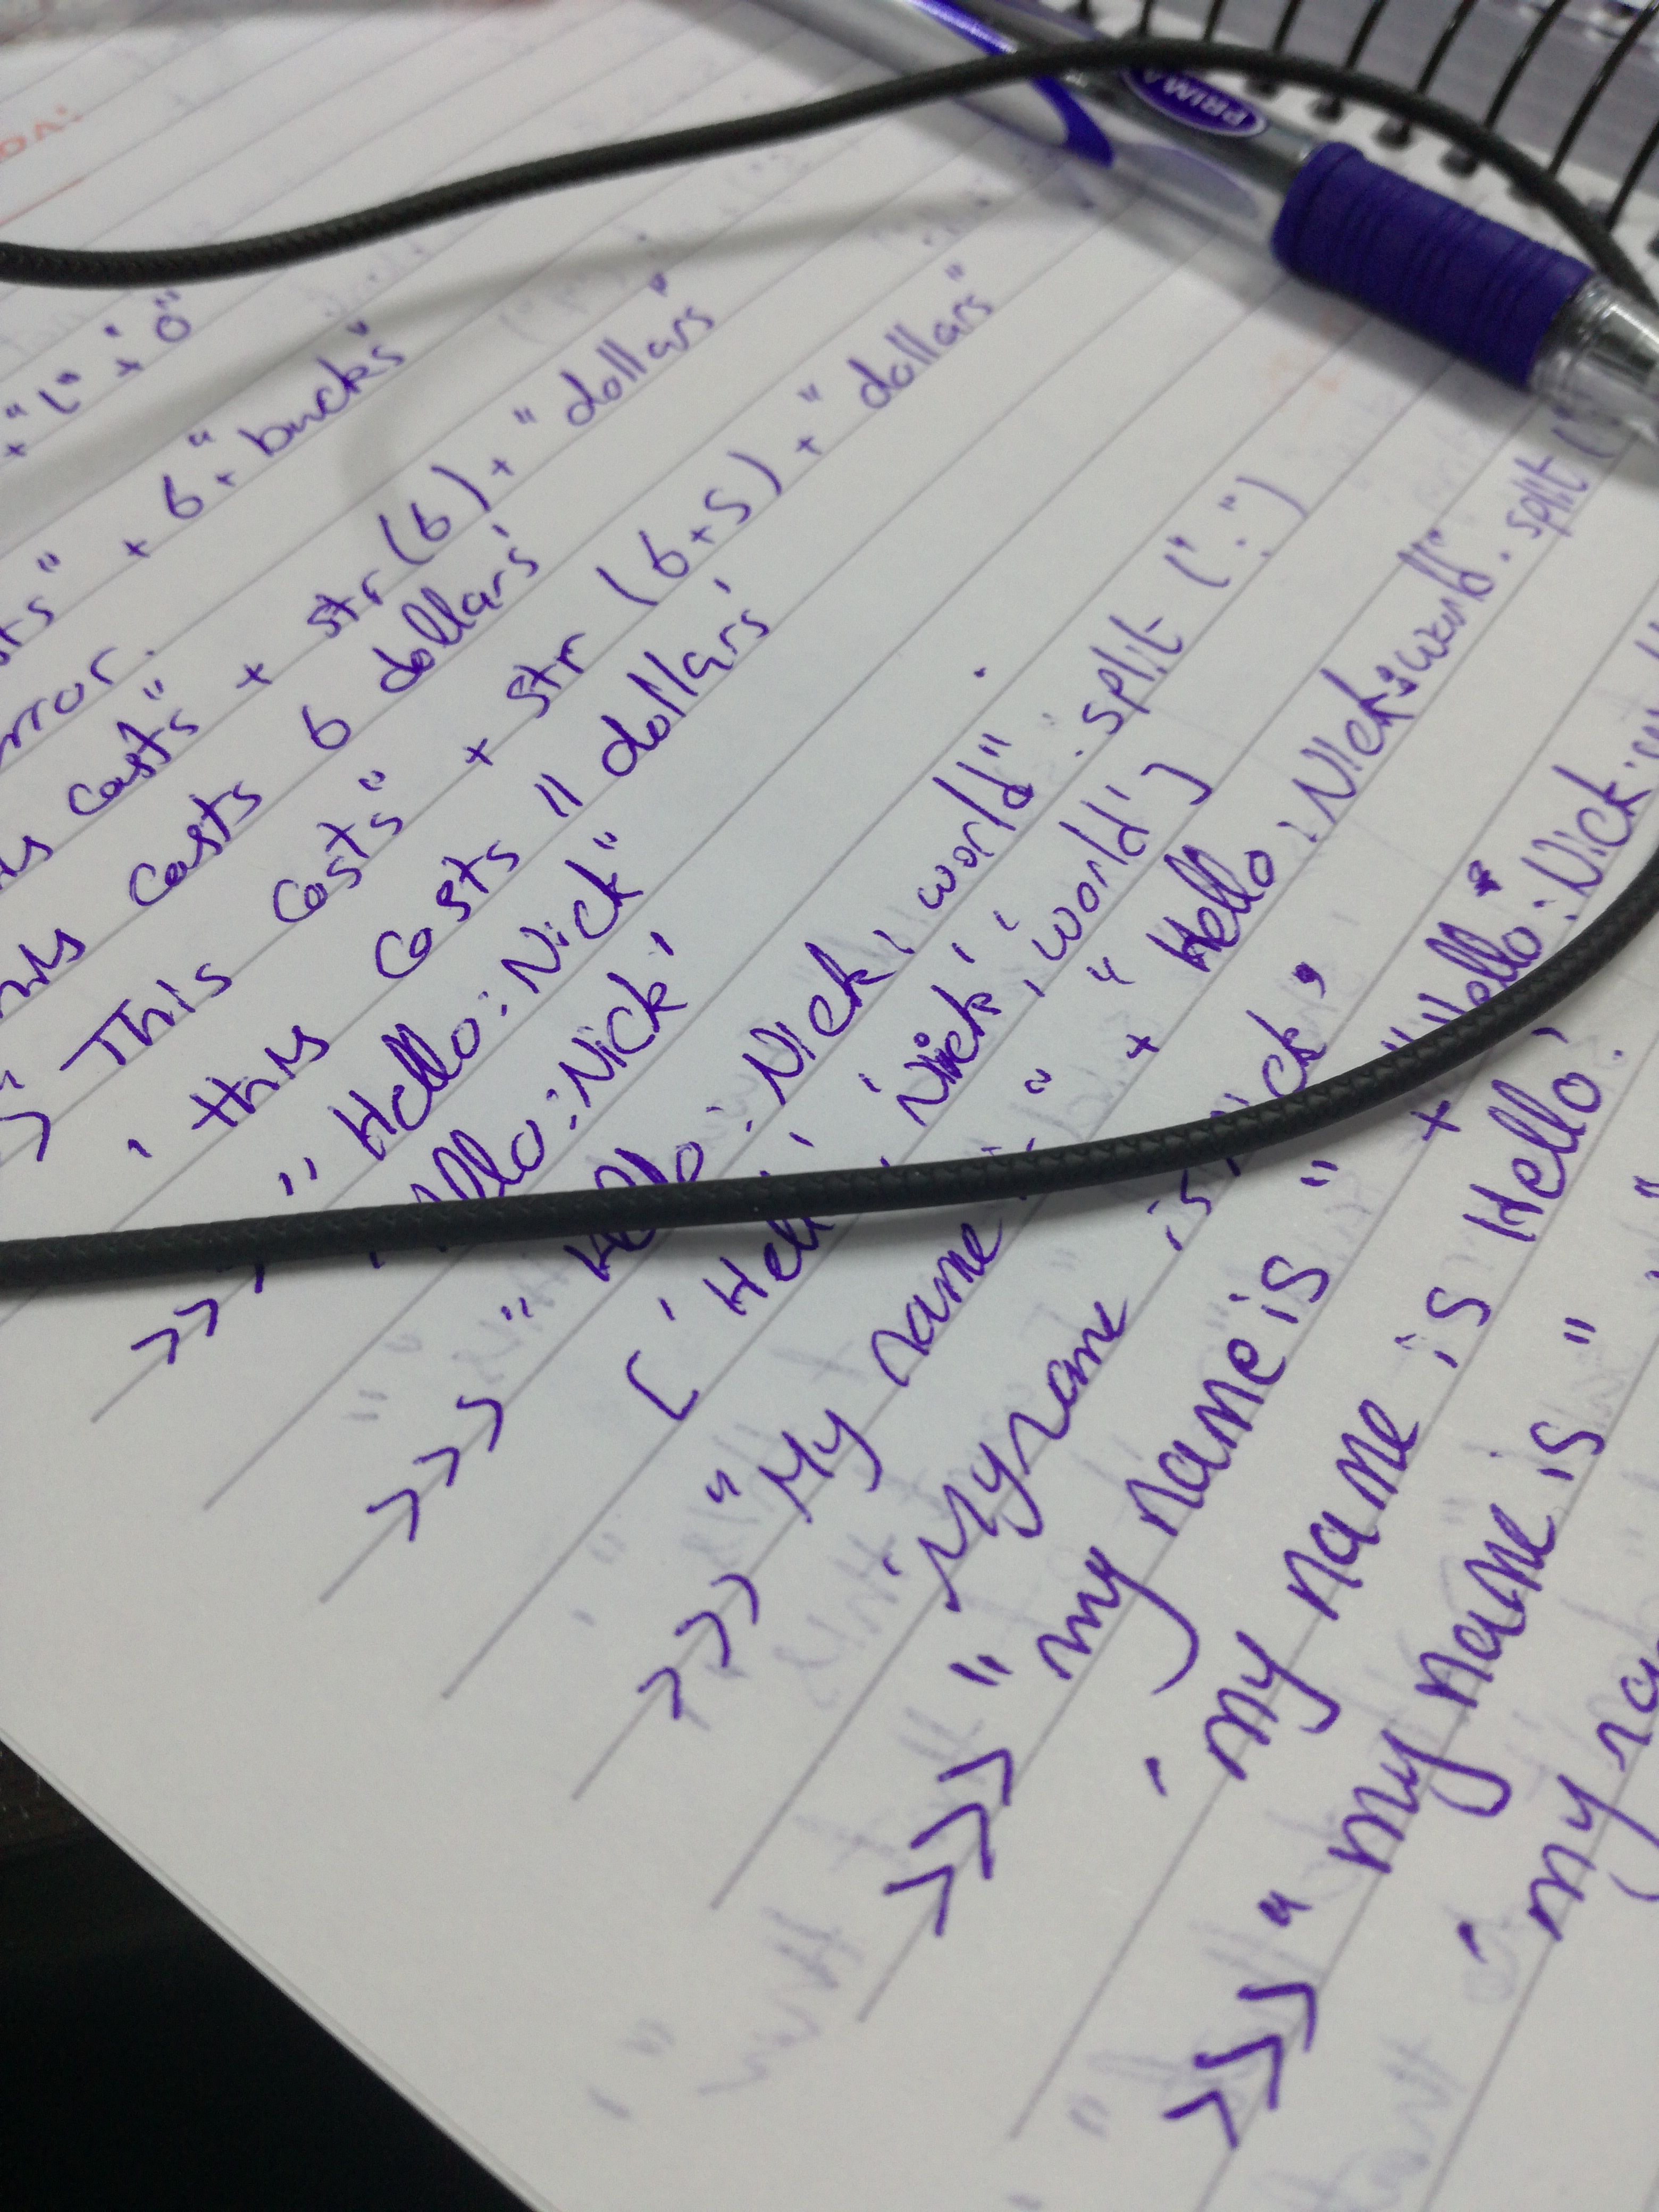 PRIMA
+ "l" + "o"
" + 6 + "bucks"
error.
costs" + str(6) + "dollars"
this costs 6 dollars'
" This costs" + str (6+5) + "dollars"
' this costs 11 dollars'
>>> "Hello:Nick"
'Hello:Nick'
>>> "Hello:Nick:world".split (":")
['Hello', 'Nick', 'world']
>>> "My name is" + "Hello:Nick:world".split (
'My name is Nick'
>>> "my name is" + "Hello:Nick:
'my name is Hello'
>>> "my name is"
'my